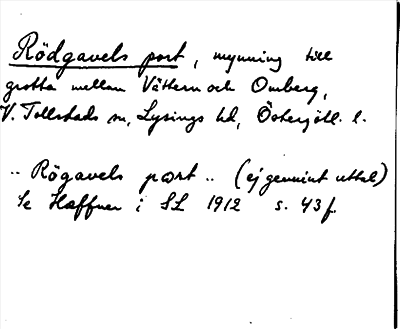 Rödgavels port, mynning till
grotta mellan Vättern och Omberg,
V. Tollstads sn, Lysings hd, Östergötl. l.
.. Rögavels pört .. (ej genuint uttal)
Se Haffner i SL 1912 s. 43 f.